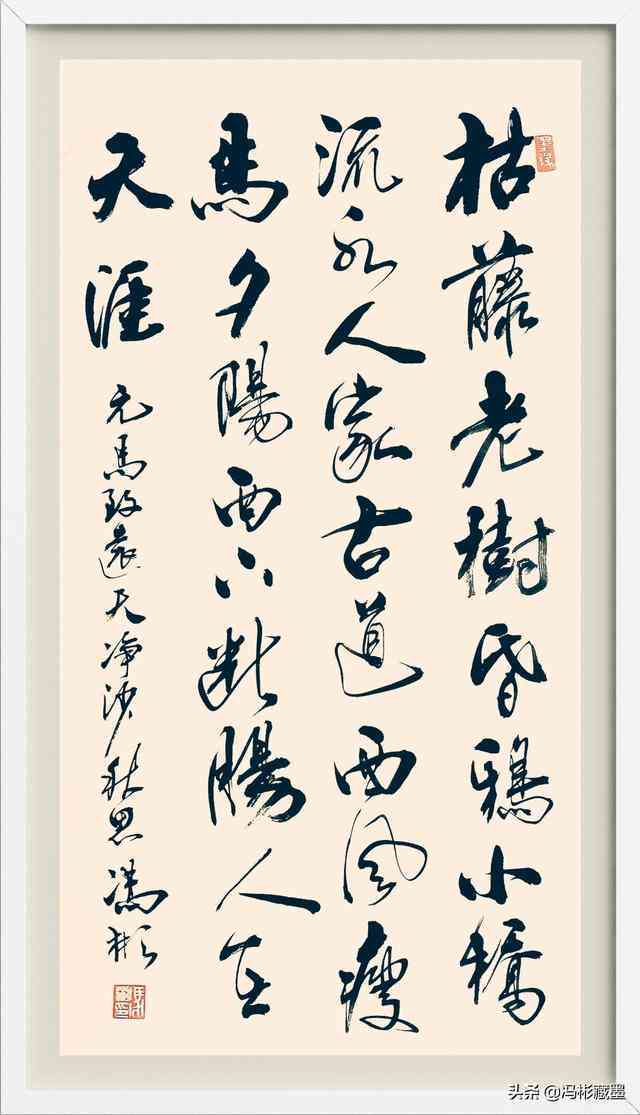 枯藤老樹昏鴉小橋
流水人家古道西風瘦
馬夕陽西下斷腸人在
天涯
元馬致遠天净沙秋思馮彬
头条 @冯彬藏墨